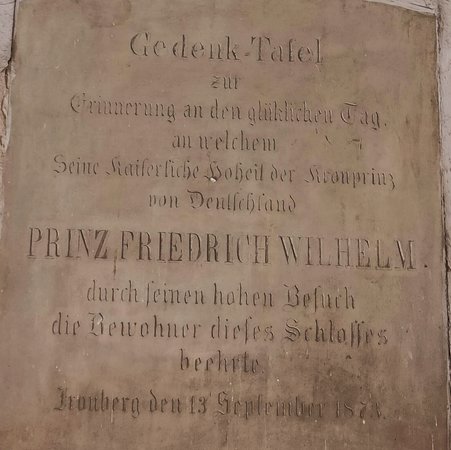 Gedenk-Tafel
zur
Erinnerung an den glüklichen Tag,
an welchem
Seine Kaiserliche Hoheit der Kronprinz
von Deutschland
PRINZ FRIEDRICH WILHELM.
durch seinen hohen Besuch
die Bewohner dieses Schlosses
beehrte.
Ironberg den 13 September 1873.